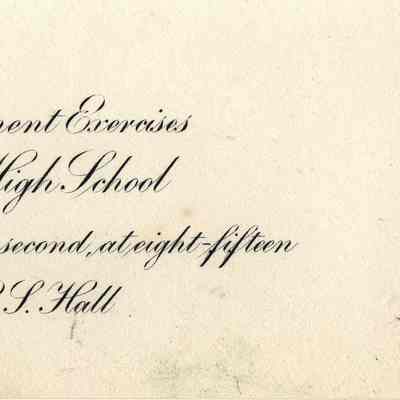 nent Exercises
High School
second, at eight-fifteen
S. Hall